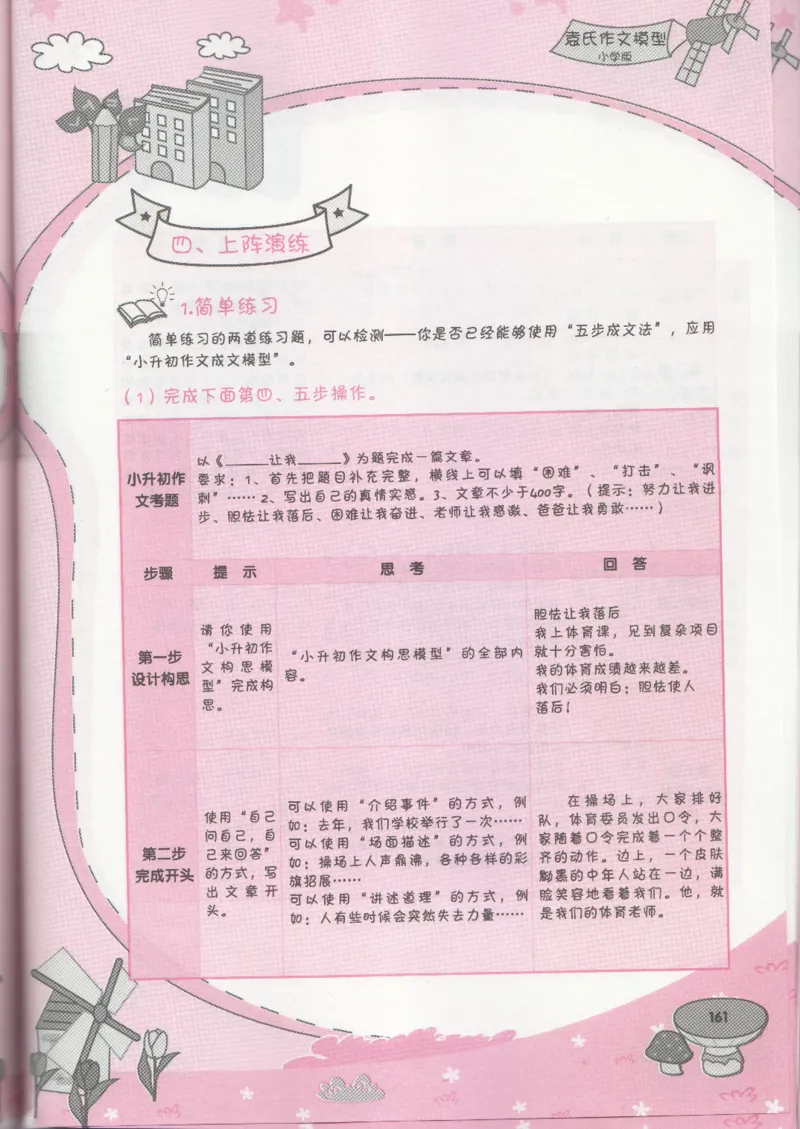 袁氏作文模型
小学版
四、上阵演练
1.简单练习
简单练习的两道练习题，可以检测——你是否已经能够使用“五步成文法”，应用
“小升初作文成文模型”。
（1）完成下面第四、五步操作。
小升初作
文考题
以《______让我______》为题完成一篇文章。
要求：1、首先把题目补充完整，横线上可以填“困难”、“打击”、“讽
刺”……2、写出自己的真情实感。3、文章不少于400字。（提示：努力让我进
步、胆怯让我落后、困难让我奋进、老师让我感激、爸爸让我勇敢……）
步骤
提 示
思 考
回 答
第一步
设计构思
请你使用
“小升初作
文构思模
型”完成构
思。
“小升初作文构思模型”的全部内
容。
胆怯让我落后
我上体育课，见到复杂项目
就十分害怕。
我的体育成绩越来越差。
我们必须明白：胆怯使人
落后！
第二步
完成开头
使用“自己
问自己，自
己来回答”
的方式，写
出文章开
头。
可以使用“介绍事件”的方式，例
如：去年，我们学校举行了一次……
可以使用“场面描述”的方式，例
如：操场上人声鼎沸，各种各样的彩
旗招展……
可以使用“讲述道理”的方式，例
如：人有些时候会突然失去力量……
在操场上，大家排好
队，体育委员发出口令，大
家随着口令完成着一个个整
齐的动作。边上，一个皮肤
黝黑的中年人站在一边，满
脸笑容地看着我们。他，就
是我们的体育老师。
161